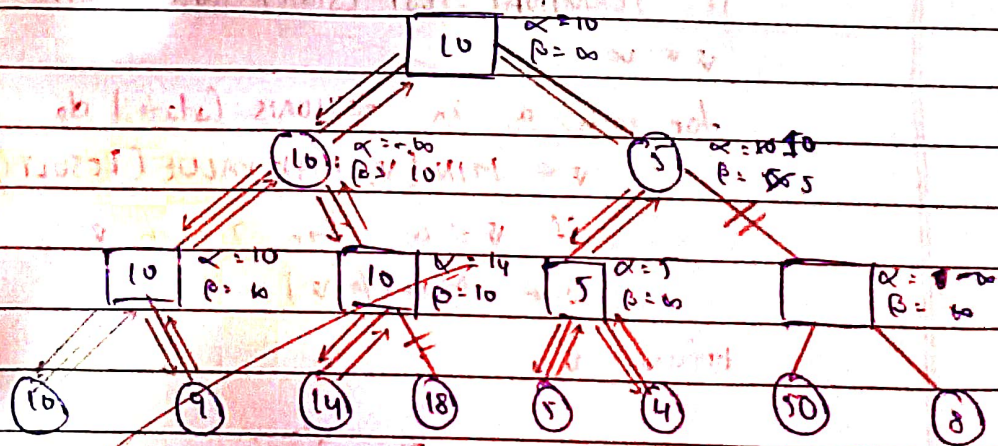 10
α = 10
β = ∞
10
α = -∞
β = 10
5
α = 10
β = 5
10
α = 10
β = ∞
10
α = 14
β = 10
5
α = 5
β = ∞
α = -∞
β = ∞
10
9
14
18
5
4
50
8